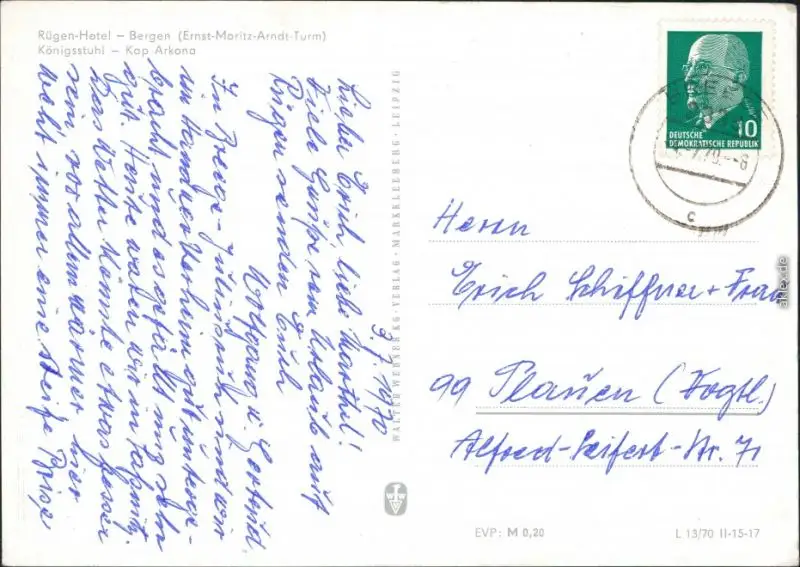 Rügen-Hotel – Bergen (Ernst-Moritz-Arndt-Turm)
Königsstuhl – Kap Arkona
9.7.1970
Lieber Erich, liebe Marthel!
Viele Grüße vom Urlaub auf
Rügen senden Euch
Wolfgang u. Gertrud.
In Breege-Juliusruh sind wir
im Handwerkerheim gut unterge-
bracht und es gefällt uns sehr
gut. Heute waren wir in Saßnitz.
Das Wetter könnte etwas besser
sein, vor allem wärmer, hier
weht immer eine steife Brise
WALTER WERNER KG · VERLAG · MARKKLEEBERG · LEIPZIG
DEUTSCHE
DEMOKRATISCHE REPUBLIK
10
BREEGE
.70.-8
c
Herrn
Erich Schiffner + Frau
99 Plauen (Vogtl.)
Alfred-Seifert-Str. 71
EVP: M 0,20
L 13/70 II-15-17
aklex.de